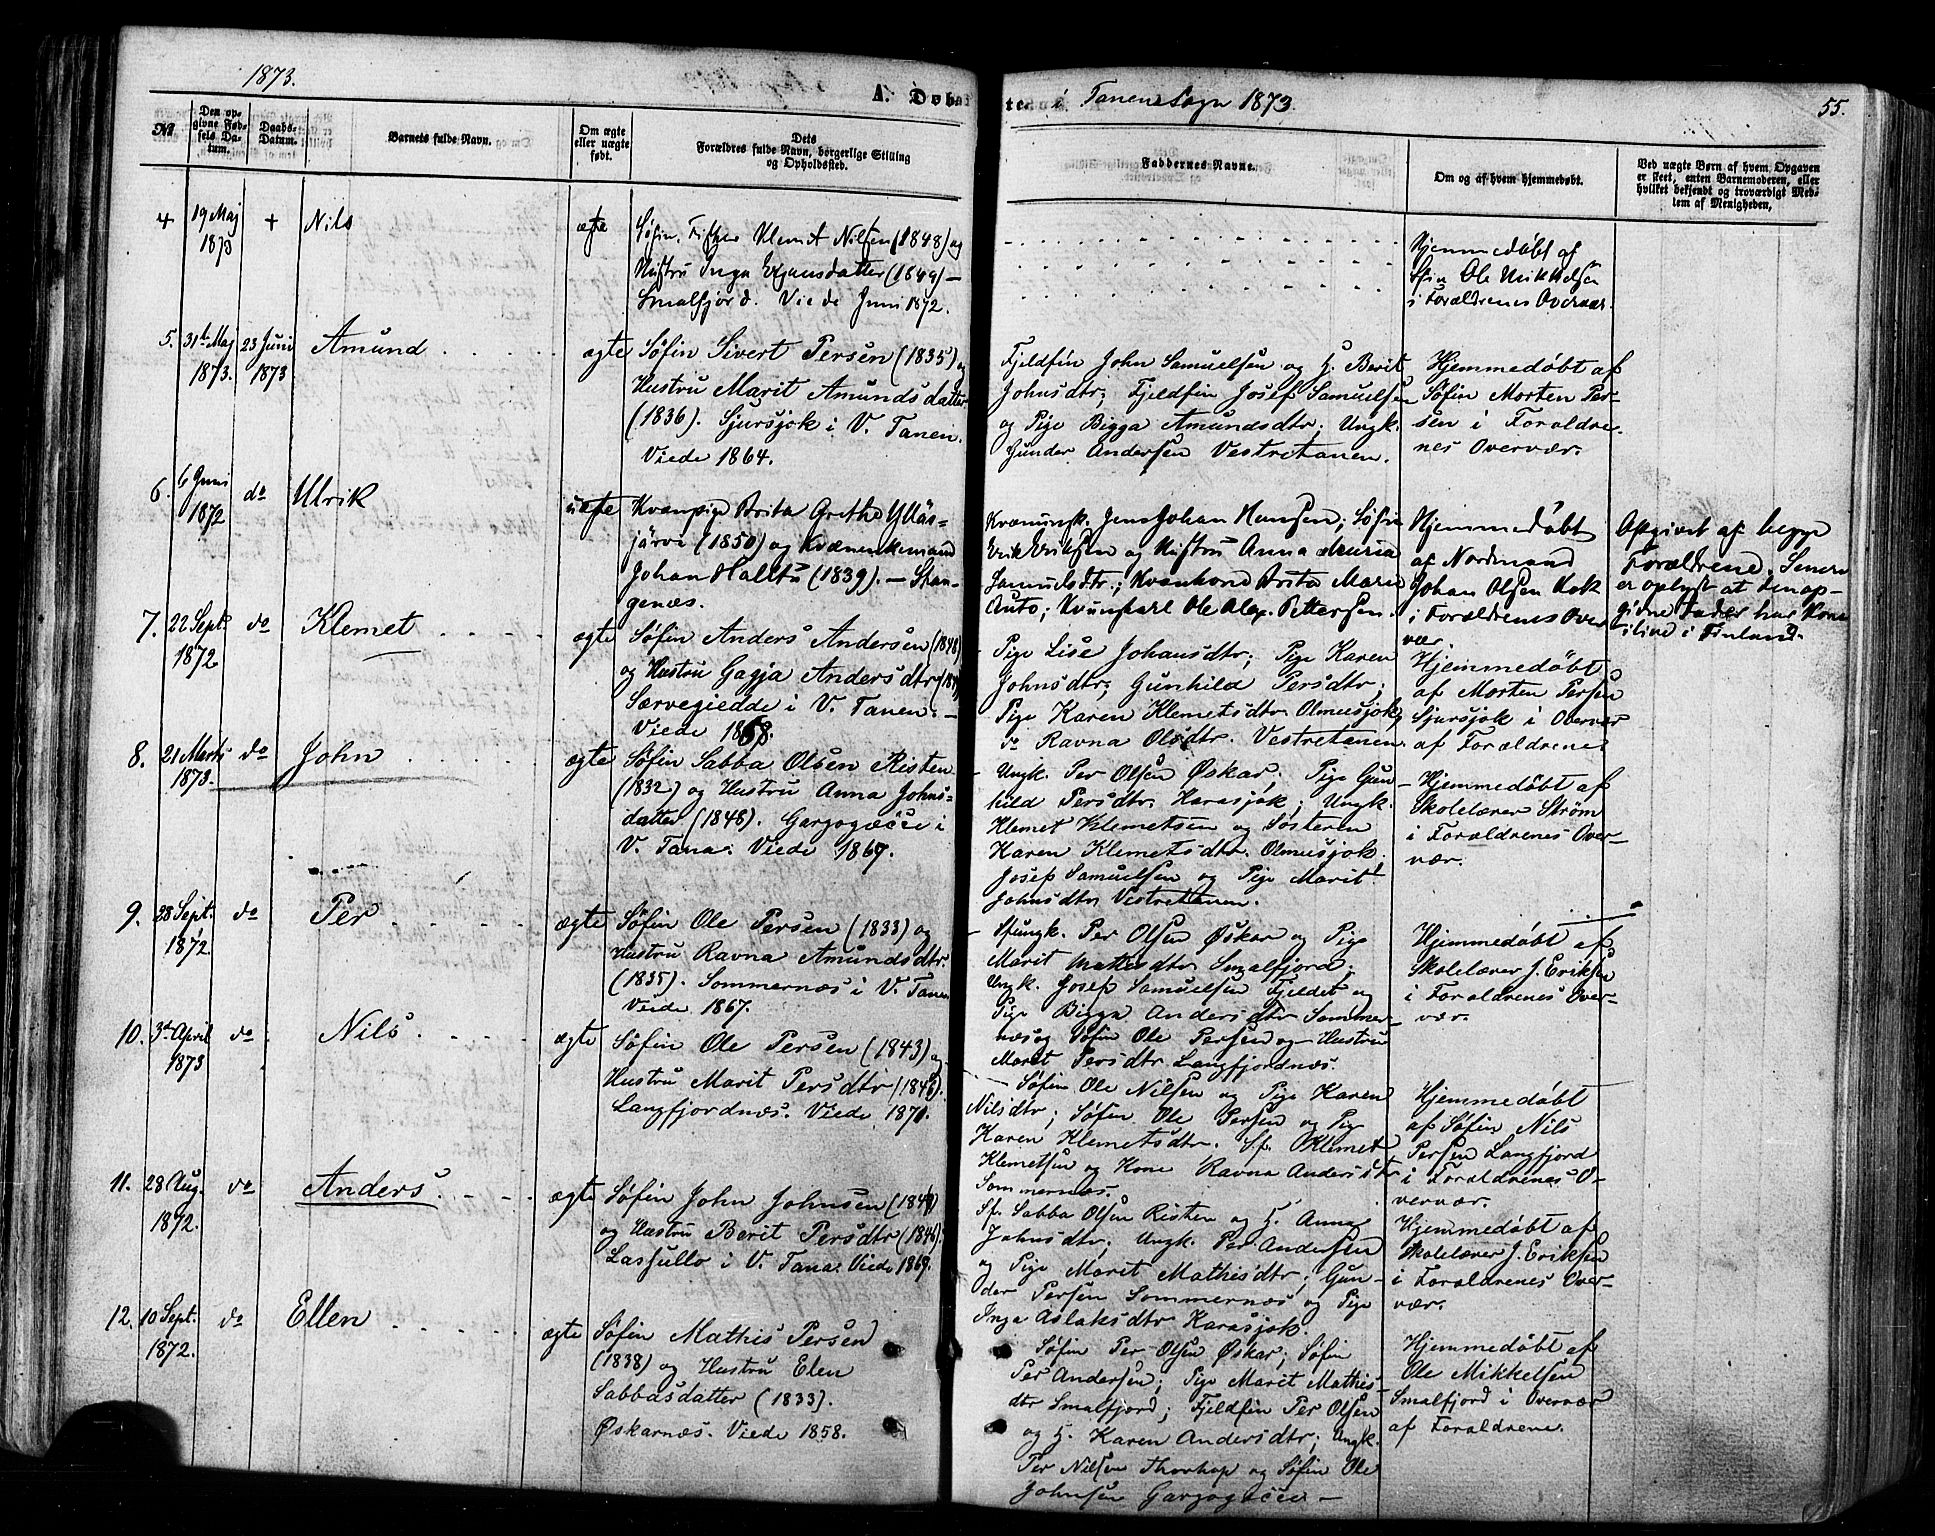 1873.
A. Døbte
i Tanens Sogn 1873.
55.
№
Den opgivne Fødsels Datum.
Daabs-Datum.
Barnets fulde Navn.
Om ægte eller uægte født.
Dets Forældres fulde Navn, borgerlige Stilling og Opholdsted.
Faddernes Navne.
Om og af hvem hjemmedøbt.
Ved uægte Børn af hvem Opgaven er skeet, enten Barnemoderen, eller hvilket bekjendt og troværdigt Medlem af Menigheden,
4
19 Maj
1873
+
Nils
ægte
Søfin, Fisker Klemet Nilsen (1848) og
Hustru Inga (1849) –
Smalfjord. Viede Juni 1872.
Hjemmedøbt af
Sfin Ole Mikkelsen
i Forældrenes Overvær.
5.
31te Maj
1873.
23 Juni
1873
Amund
ægte
Søfin Sivert Persen (1835) og
Hustru Marit Amundsdatter
(1836). Sjursjok i V. Tanen.
Viede 1864.
Fjeldfin John Samuelsen og H. Berit
Johnsdtr; Fjeldfin Josef Samuelsen
og Pige Bigga Amundsdtr; Ungk.
Gunder Andersen Vestretanen.
Hjemmedøbt af
Søfin Morten Per-
sen i Forældre-
nes Overvær.
6.
6 Juni
1872
do
Ulrik
uægte
Kvænpige Brita Grethe Ylläs-
järvi (1850) og Kvænenkemand
Johan (1839). – Stan-
genæs.
Jens Johan Hansen; Søfin
Erik Eriksen og Hustru Anna Maria
Samuelsdtr; Kvænkone Brita Maria
Auto; Kvænkarl Ole Alex. Pettersen.
Hjemmedøbt
af Nordmand
Johan Olsen Kok
i Forældrenes Over
vær.
Opgivet af begge
Forældrene. Senere
er oplyst at den op-
givne Fader har Kone
ilive i Finland.
7.
22 Sept.
1872
do
Klemet
ægte
Søfin Anders Andersen (1848)
og Hustru Gagja Andersdtr
Særvegiedde i V. Tanen. –
Viede 1868.
Pige Lise Johansdtr; Pige Karen
Johnsdtr; Gunhild Persdtr;
Pige Karen Klemetsdtr Olmusjok,
do Ravna Olsdtr. Vestretanen.
Hjemmedøbt
af Morten Persen
Sjursjok i Overvær
af Forældrenes
8.
21 Marts
1873.
do
John
ægte
Søfin Sabba Olsen Risten
(1832) og Hustru Anna Johns-
datter (1848). Gargogæcce i
V. Tana. Viede 1867.
Ungk. Per Olsen Øskar. Pige Gun-
hild Persdtr. Karasjok; Ungk.
Klemet Klemetsen og Søsteren
Karen Klemetsdtr. Olmusjok,
Josef Samuelsen og Pige Marit
Johnsdtr Vestretanen.
Hjemmedøbt af
Skolelærer Strøm
i Forældrenes Over-
vær.
9.
28 Sept.
1872.
do
Per
ægte
Søfin Ole Persen (1833) og
Hustru Ravna Amundsdtr.
(1835). Sommernæs i V. Tanen
Viede 1867.
Sfungk. Per Olsen Øskar og Pige
Marit Mathisdtr Smalfjord;
Ungk. Josef Samuelsen Fjeldet og
Pige Bigga Andersdtr Sommer-
næs og Søfin Ole Persen og Hustru
Marit Persdtr Langfjordnæs.
Hjemmedøbt af
Skolelærer J. Eriksen
i Forældrenes Over-
vær.
10.
3de April
1873
do
Nils.
ægte
Søfin Ole Persen (1843) og
Hustru Marit Persdtr (1846).
Langfjordnæs. Viede 1871.
Søfin Ole Nilsen og Pige Karen
Nilsdtr; Søfin Ole Persen og Pige
Karen Klemetsdtr. Sf. Klemet
Klemetsen og Kone Ravna Andersdtr
Sommernæs.
Hjemmedøbt
af Søfin Nils
Persen Langfjord
i Forældrenes O-
vervær.
11.
28 Aug.
1872.
do
Anders
ægte
Søfin John Johnsen
og Hustru Berit Persdtr (1846).
Lassullo i V. Tana. Viede 1869.
Sf. Sabba Olsen Risten og H. Anna
Johnsdtr; Ungk. Per Andersen
og Pige Marit Mathisdtr; Gun-
der Persen Sommernæs og Pige
Inga Aslaksdtr Karasjok.
Hjemmedøbt af
Skolelærer J. Eriksen
i Forældrenes Over-
vær.
12.
10 Sept.
1872.
do
Ellen
ægte
Søfin Mathis Persen
(1838) og Hustru Elen
Sabbasdatter (1833).
Øskarnæs. Viede 1858.
Søfin Per Olsen Øskar; Søfin
Per Andersen; Pige Marit Mathis-
dtr Smalfjord; Fjeldfin Per Olsen
og H. Karen Andersdtr; Ungk.
Per Nilsen Thorhop og Søfin Ole
Johnsen Gargogæcce –
Hjemmedøbt af
Ole Mikkelsen
Smalfjord i Overvær
af Forældrene.